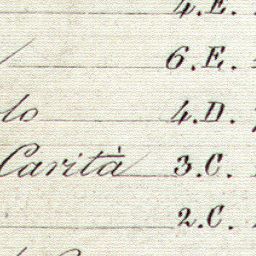 4.E.
6.E.
lo 4.D.
Carità 3.C.
2.C.